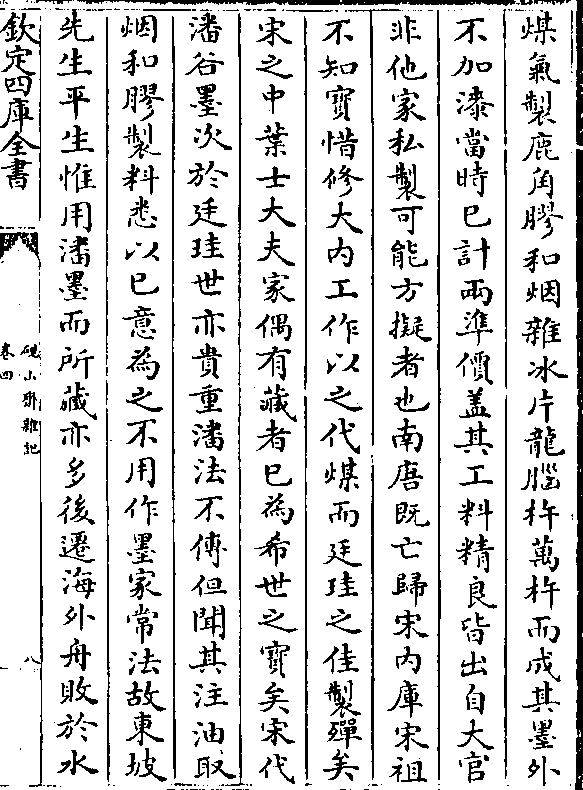 煤氣製鹿角膠和烟雜冰片龍腦杵萬杵而成其墨外
不加漆當時已計兩準價蓋其工料精良皆出自大官
非他家私製可能方擬者也南唐既亡歸宋内庫宋祖
不知寶惜修大内工作以之代煤而廷珪之佳製殫矣
宋之中葉士大夫家偶有藏者已為希世之寶矣宋代
潘谷墨次於廷珪世亦貴重潘法不傳但聞其注油取
烟和膠製料悉以已意為之不用作墨家常法故東坡
先生平生惟用潘墨而所藏亦多後遷海外舟敗於水
欽定四庫全書
硯山齋雜記
卷四
八